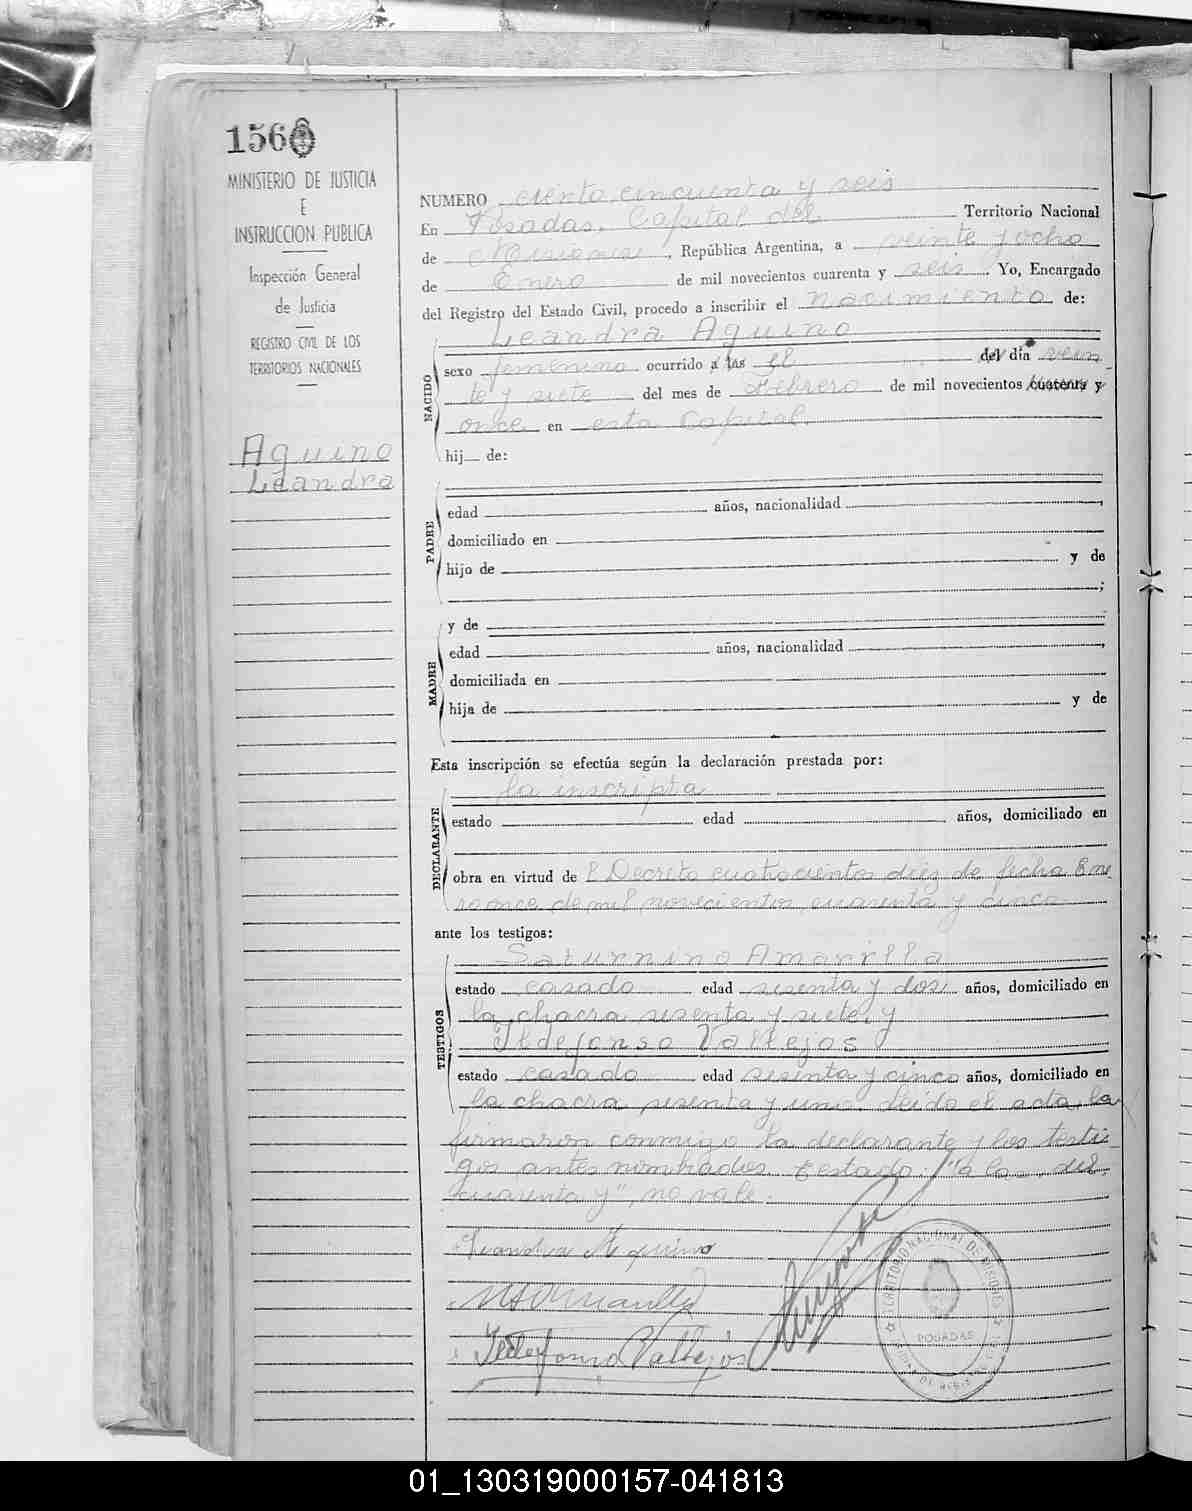 156
MINISTERIO DE JUSTICIA
E
INSTRUCCION PUBLICA
Inspección General
de Justicia
REGISTRO CIVIL DE LOS
TERRITORIOS NACIONALES
Aquino
Leandra
NUMERO ciento cincuenta y seis
En Posadas, Capital del Territorio Nacional
de Misiones, República Argentina, a veinte y ocho
de Enero de mil novecientos cuarenta y seis. Yo, Encargado
del Registro del Estado Civil, procedo a inscribir el nacimiento de:
Leandra Aquino
NACIDO
sexo femenino ocurrido a las el del día vein
te y siete del mes de Febrero de mil novecientos cuarenta y
once en esta Capital.
hij de:
PADRE
edad años, nacionalidad
domiciliado en
hijo de y de
;
MADRE
y de
edad años, nacionalidad
domiciliada en
hija de y de
Esta inscripción se efectúa según la declaración prestada por:
la inscripta
DECLARANTE
estado edad años, domiciliado en
obra en virtud de l Decreto cuatrocientos diez de fecha Ene
ro once de mil novecientos cuarenta y cinco
ante los testigos:
TESTIGOS
Saturnino Amarilla
estado casado edad sesenta y dos años, domiciliado en
la chacra sesenta y siete y
Ildefonso Vallejos
estado casado edad sesenta y cinco años, domiciliado en
la chacra sesenta y uno. Leido el acta, la
firmaron conmigo la declarante y los testi
gos antes nombrados. Testado: "a las, del,
cuarenta y", no vale.
Leandra Aquino
Ildefonso Vallejos
TERRITORIO NACIONAL DE MISIONES
POSADAS
01_130319000157-041813